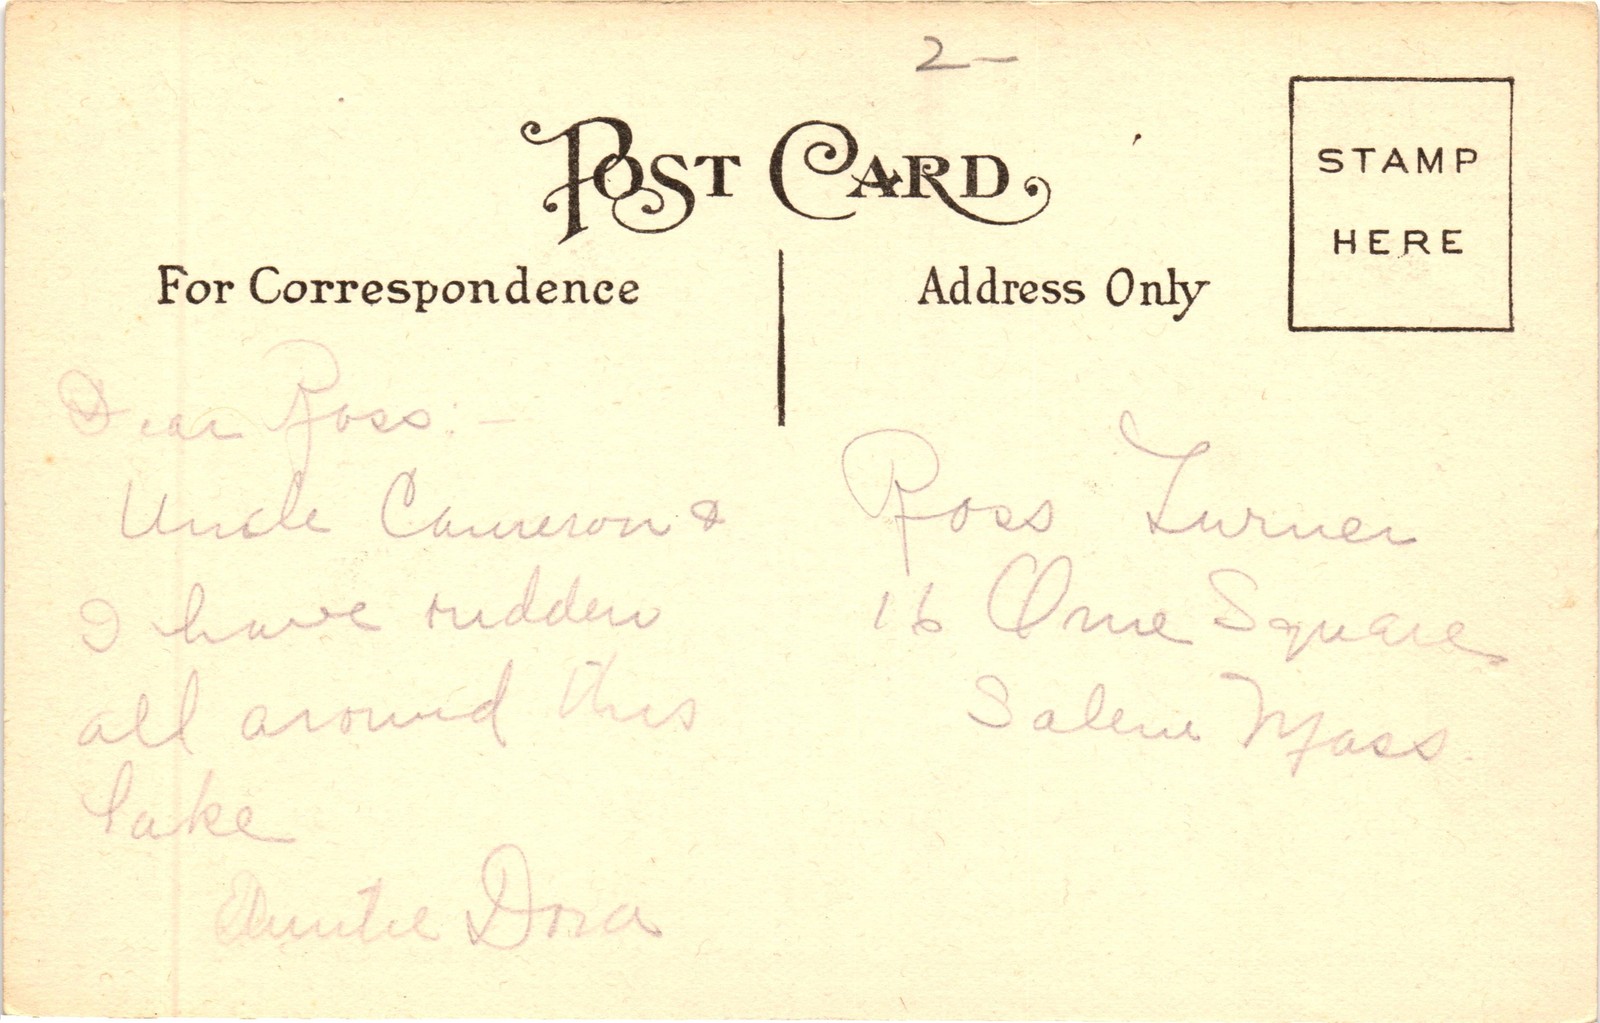 2-
POST CARD
For Correspondence
Address Only
STAMP
HERE
Dear Ross:-
Uncle Cameron &
I have ridden
all around this
lake
Auntie Dora
Ross Turner
16 Orne Square
Salem Mass